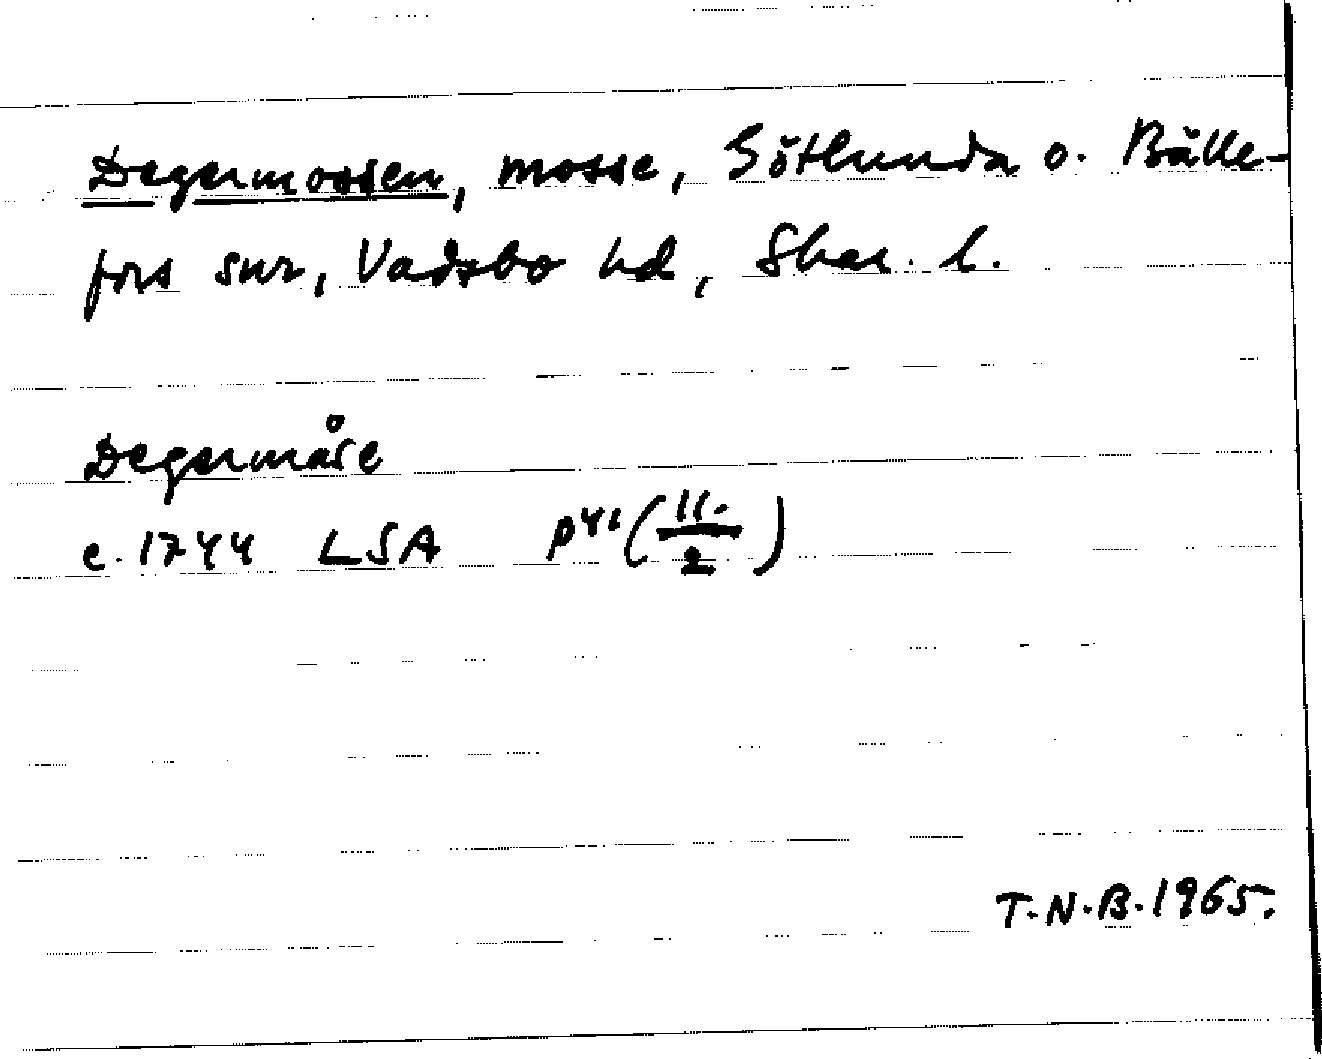 Degermossen, mosse, Götlunda o. Bälle-
fors snr, Vadsbo hd, Skar. l.
Degermåse
c. 1744 LSA P41 (11./2)
T.N.B. 1965.